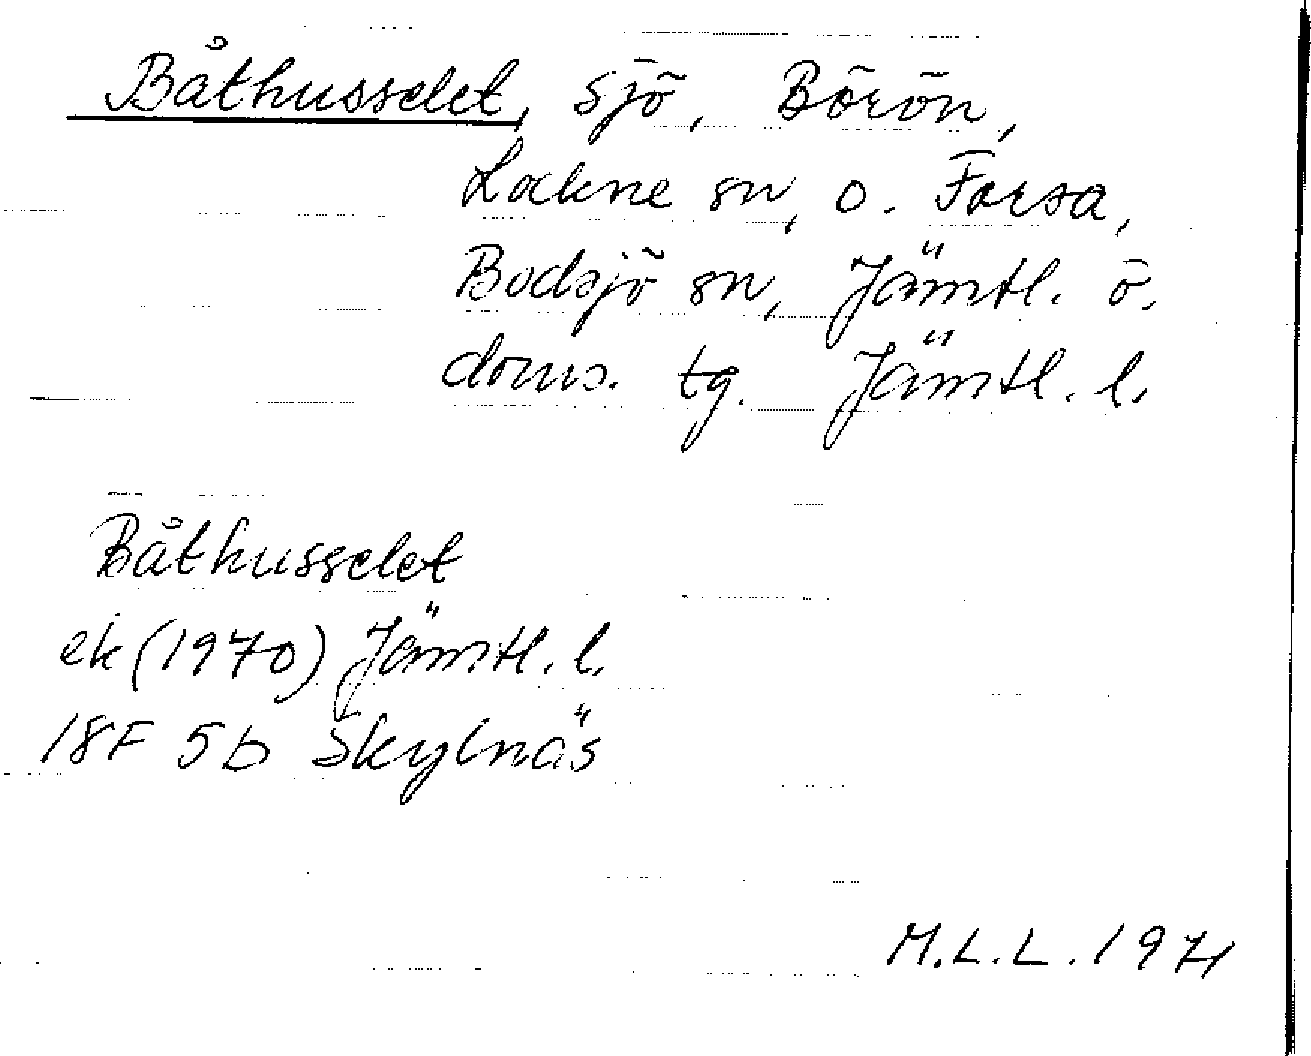 Båthusselet, sjö, Börön,
Lockne sn, o. Forsa,
Bodsjö sn, Jämtl. ö.
doms. tg. Jämtl. l.
Båthusselet
ek (1970) Jämtl. l.
18F 5b Skylnäs
M.L.L. 1971